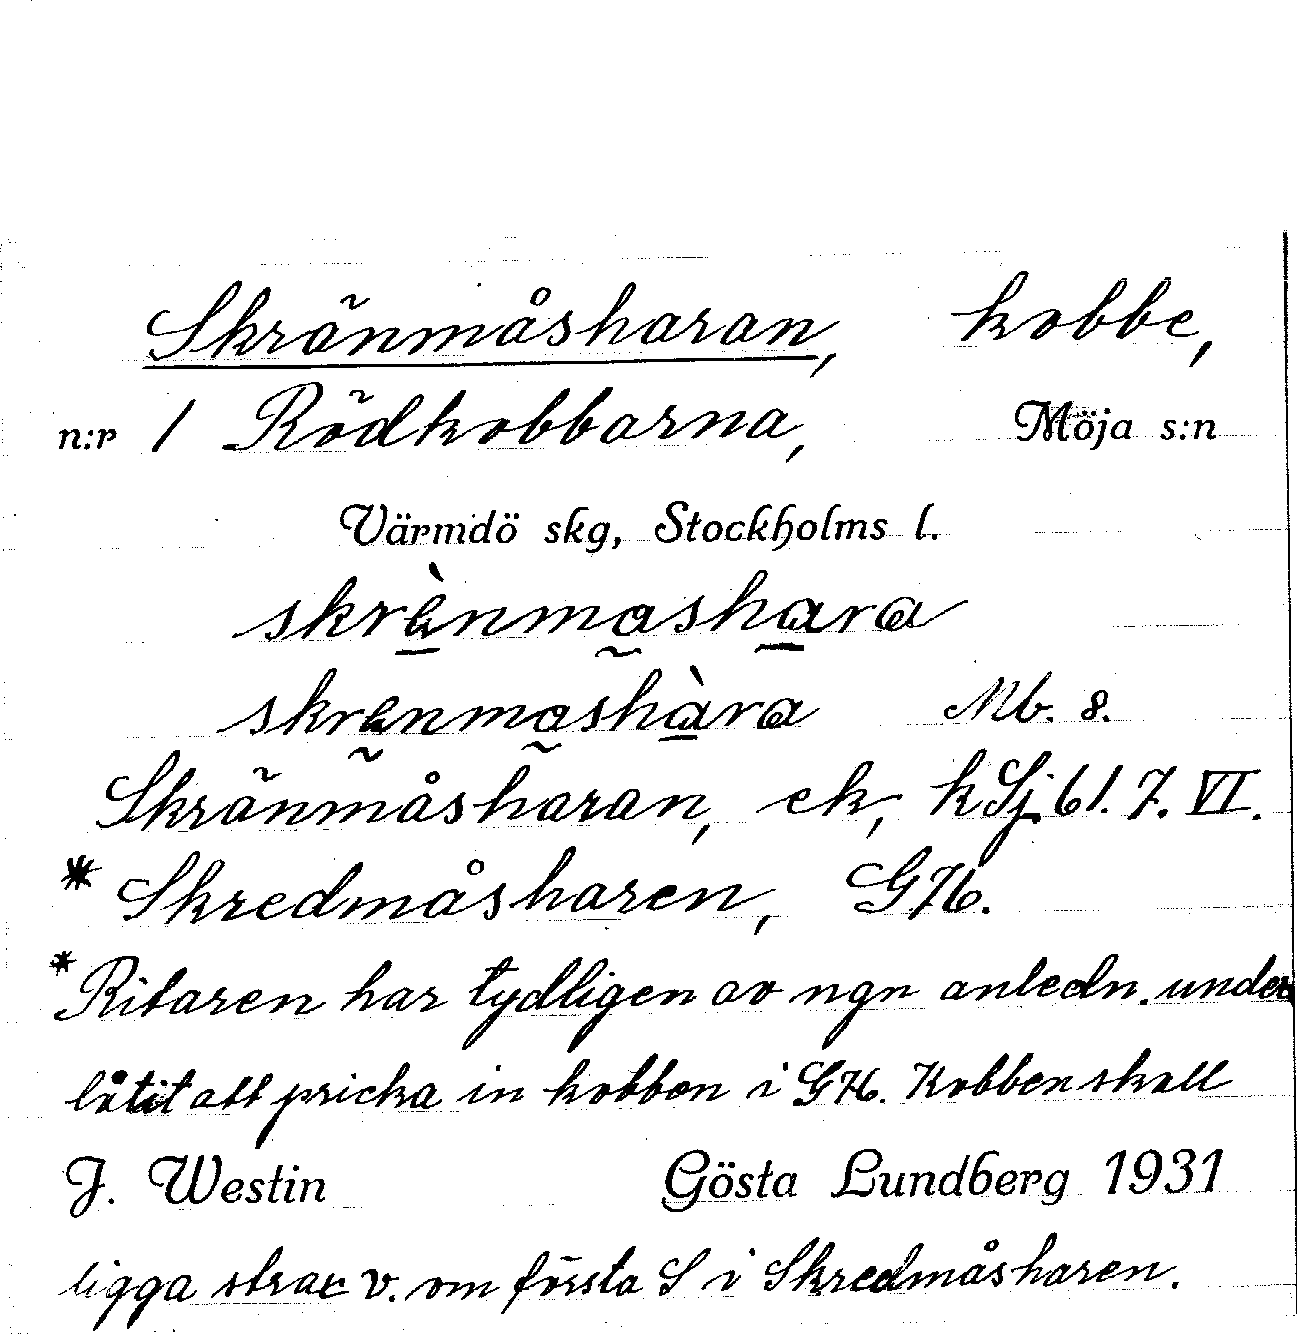 Skränmåsharan, kobbe,
n:r 1 Rödkobbarna, Möja s:n
Värmdö skg, Stockholms l.
skrὰnmashara
skranmashàra Mb. 8.
Skränmåsharan, ek, kSj 61. 7. VI.
* Skredmåsharen, G76.
* Ritaren har tydligen av ngn anledn. under
låtit att pricka in kobben i G76. Kobben skall
J. Westin Gösta Lundberg 1931
ligga strax v. om första S i Skredmåsharen.